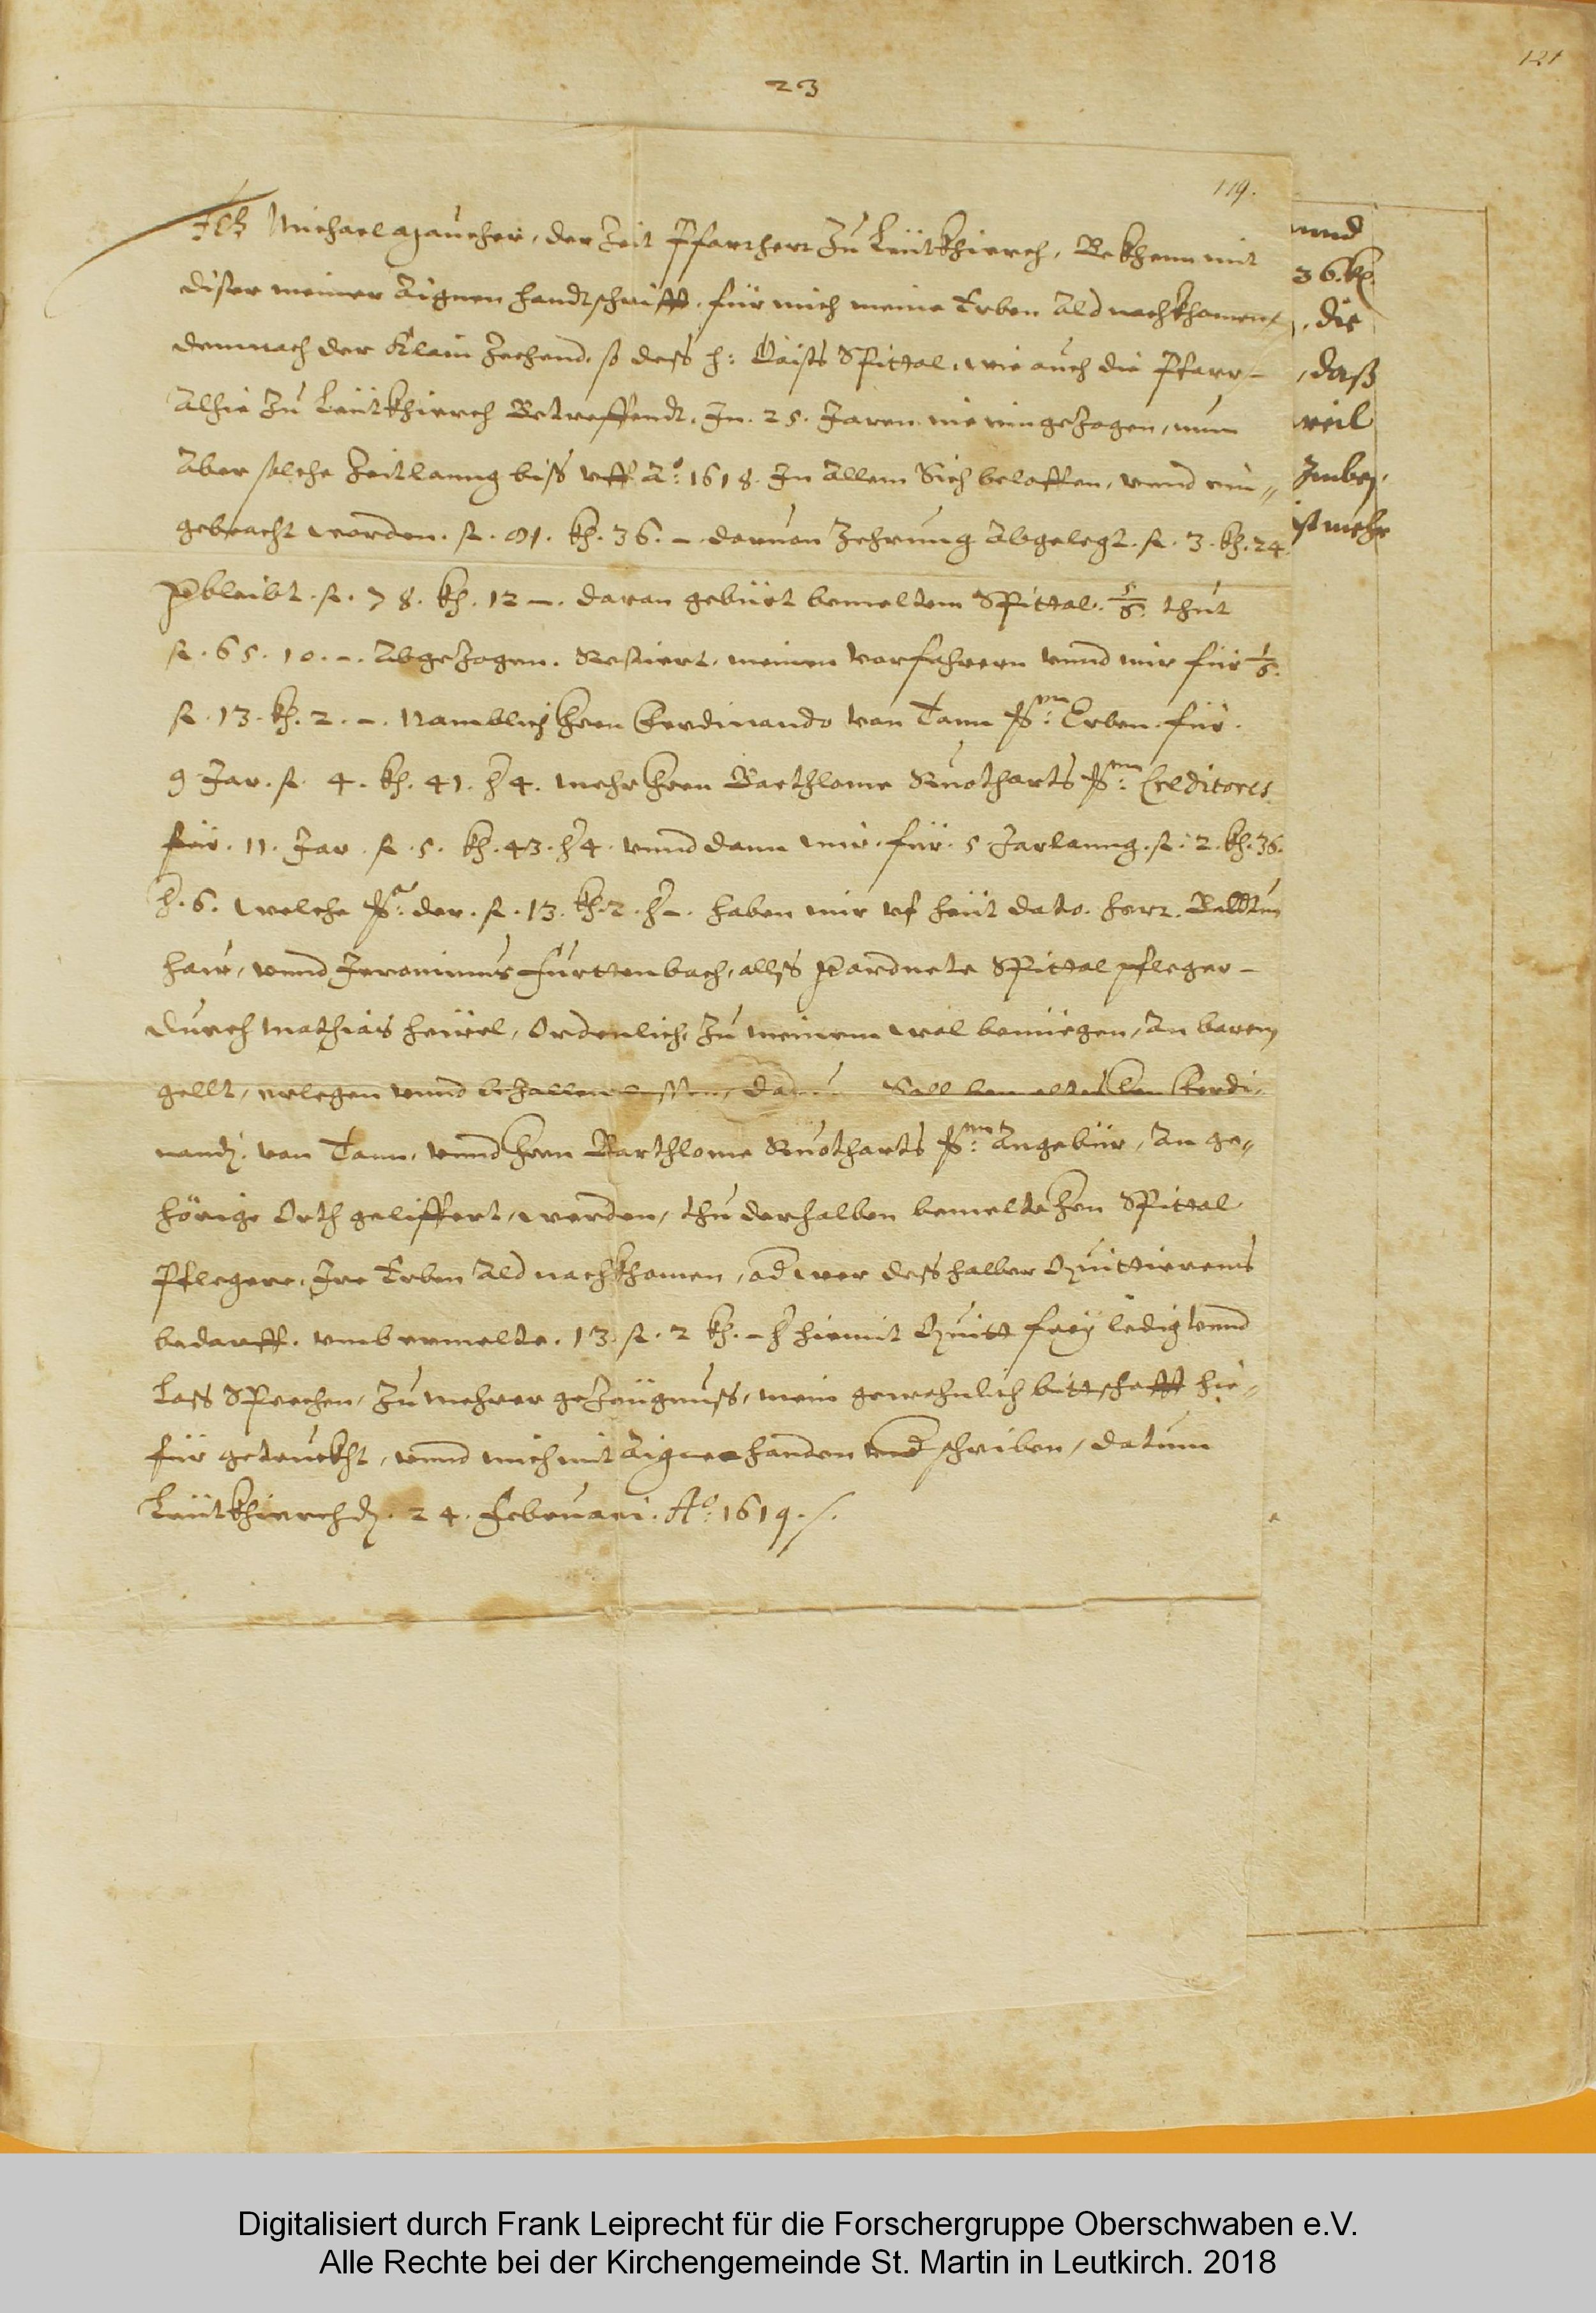 23
121
119.
Ich Michael Gaucher, der Zeit Pfarrherr Zu Leütkhierch, Bekhenn mit
diser meiner Aignen handtschrifft, für mich meine Erben Ald nachkhomen,
demnach der Klain Zechend, so dess h: Gaists Spittal, wie auch die Pfarr-
Alhie Zu Leütkhierch Betreffendt, In. 25. Jaren nie eingezogen, nun
Aber solche Zeitlanng biss vff Aº: 1618. In Allem Sich beloffen, vnnd ein„
gebracht worden. fl. 81. kh. 36. –. daruon Zehrung Abgelegt. fl. 3. kh. 24.
Verbleibt. fl. 78. kh. 12 –. daran gebürt bemeltem Spittal. 5/6. thut
fl. 65. 10. –. Abgezogen. Restiert, meinen vorfahrern vnnd mir für 1/6.
fl. 13. kh. 2. –. Namblich Herrn Ferdinando von Tann Erben für.
9 Jar. fl. 4. kh. 41. h 4. mehr Herrn Barthlome Ruotharts Creditores
für. 11. Jar. fl. 5. kh. 43. h 4. vnnd dann mir. für. 5 Jarlanng. fl. 2. kh. 36.
h. 6. welche der. fl. 13. kh. 2. h –. haben mir vf heüt dato. herr.
haw, vnnd Jeronimus Furttenbach, allss verordnete Spittal pfleger –
durch Mathias Ordenlich, Zu meinem wol benüegen, An barem
gellt, erlegen vnnd bezallen lassen, Soll bemeltes Herrn Ferdi„
nandj. von Tann, vnnd Herrn Barthlome Ruotharts Angebür, An ge„
hörige Orth geliffert, werden, thu derhalben bemelte Herrn Spittal
Pflegere, Ire Erben Ald nachkhomen, oder wer desshalber Quittierens
bedarff. vmb ermelte. 13. fl. 2 kh. – h hiemit Quitt freÿ ledig vnnd
Loss Sprechen, Zu mehrer geZeügnuss, mein gewohnlich bittschafft hie„
für getruckht, vnnd mich mit Aignen handen vnderschriben, datum
Leütkhierch dj. 24. Februari. Aº: 1619.
vnnd
36. kh.
, die
, dass
weil
ist mehr
Digitalisiert durch Frank Leiprecht für die Forschergruppe Oberschwaben e.V.
Alle Rechte bei der Kirchengemeinde St. Martin in Leutkirch. 2018